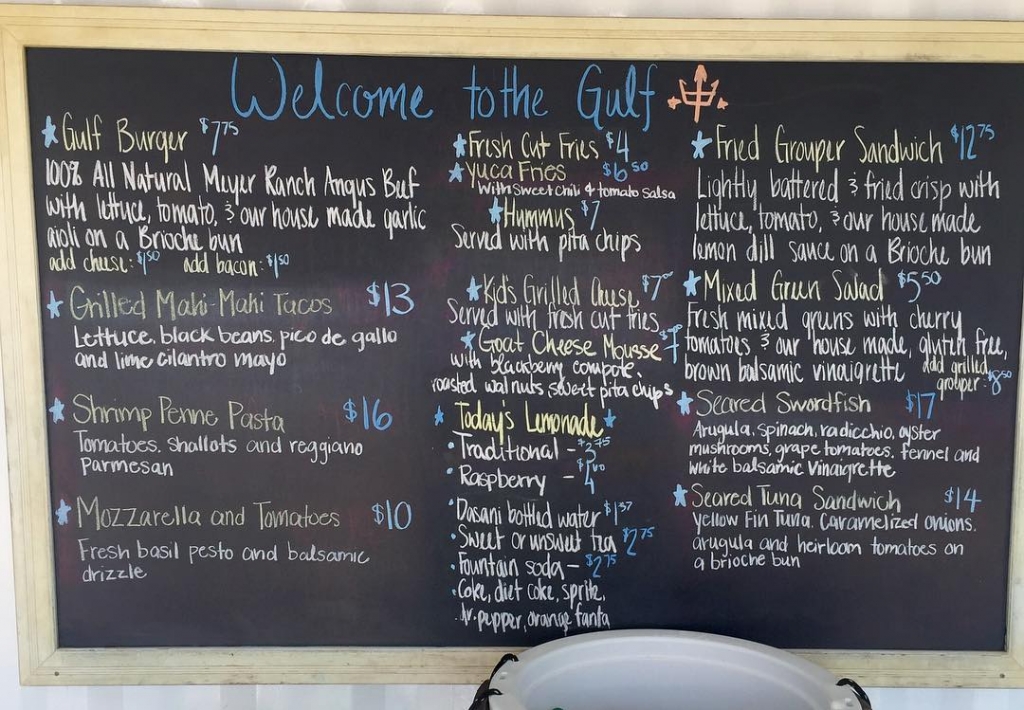 Welcome to the Gulf
Gulf Burger $7.75
100% All Natural Meyer Ranch Angus Beef
with lettuce, tomato, & our house made garlic
aioli on a Brioche bun
add cheese: $1.50 add bacon: $1.50
Grilled Mahi-Mahi Tacos $13
Lettuce, black beans, pico de gallo
and lime cilantro mayo
Shrimp Penne Pasta $16
Tomatoes, shallots and reggiano
Parmesan
Mozzarella and Tomatoes $10
Fresh basil pesto and balsamic
drizzle
Fresh Cut Fries $4
Yuca Fries $6.50
with sweet chili & tomato salsa
Hummus $7
Served with pita chips
Kid's Grilled Cheese $7
Served with fresh cut fries
Goat Cheese Mousse
with blackberry compote,
roasted walnuts, sweet pita chips
Today's Lemonade
• Traditional - $3.75
• Raspberry - $4
• Dasani bottled water $1.57
• Sweet or unsweet tea $2.75
• Fountain soda - $2.75
• Coke, diet coke, sprite,
dr. pepper, orange fanta
Fried Grouper Sandwich $12.75
Lightly battered & fried crisp with
lettuce, tomato, & our house made
lemon dill sauce on a Brioche bun
Mixed Green Salad $5.50
Fresh mixed greens with cherry
tomatoes & our house made, gluten free,
brown balsamic vinaigrette add grilled
grouper: $8.50
Seared Swordfish $17
Arugula, spinach, radicchio, oyster
mushrooms, grape tomatoes, fennel and
white balsamic vinaigrette
Seared Tuna Sandwich $14
yellow Fin Tuna, caramelized onions,
arugula and heirloom tomatoes on
a brioche bun